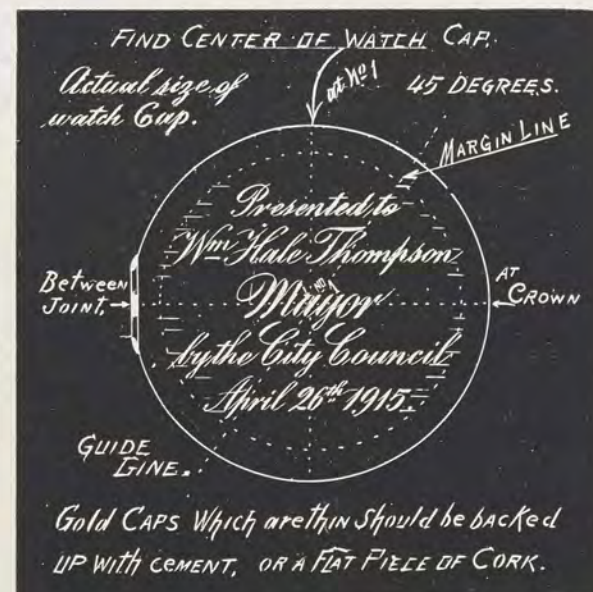 FIND CENTER OF WATCH CAP.
Actual size of
watch Cap.
at No 1
45 DEGREES.
MARGIN LINE
Presented to
Wm Hale Thompson
No 1
Mayor
by the City Council
April 26th 1915.
Between
JOINT.
AT
CROWN
GUIDE
LINE.
Gold CAPS Which are thin Should be backed
UP With CEMENT, OR A FLAT PIECE OF CORK.